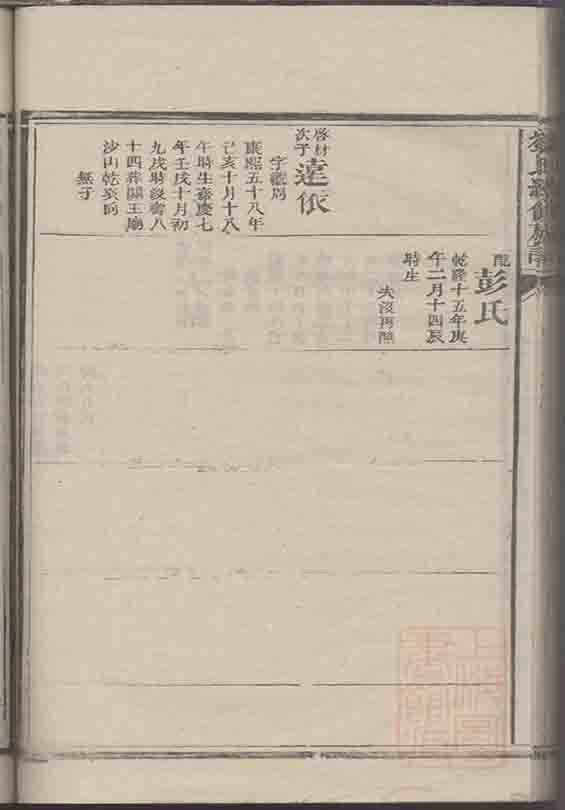 配
彭氏
乾隆十五年庚
午二月十四辰
時生
夫沒再醮
啓材
次子
達依
字
康熙五十八年
己亥十月十八
午時生壽八十
年壬戌十月初
九戌時歿壽八
十四葬關王廟
沙山乾亥向
無子